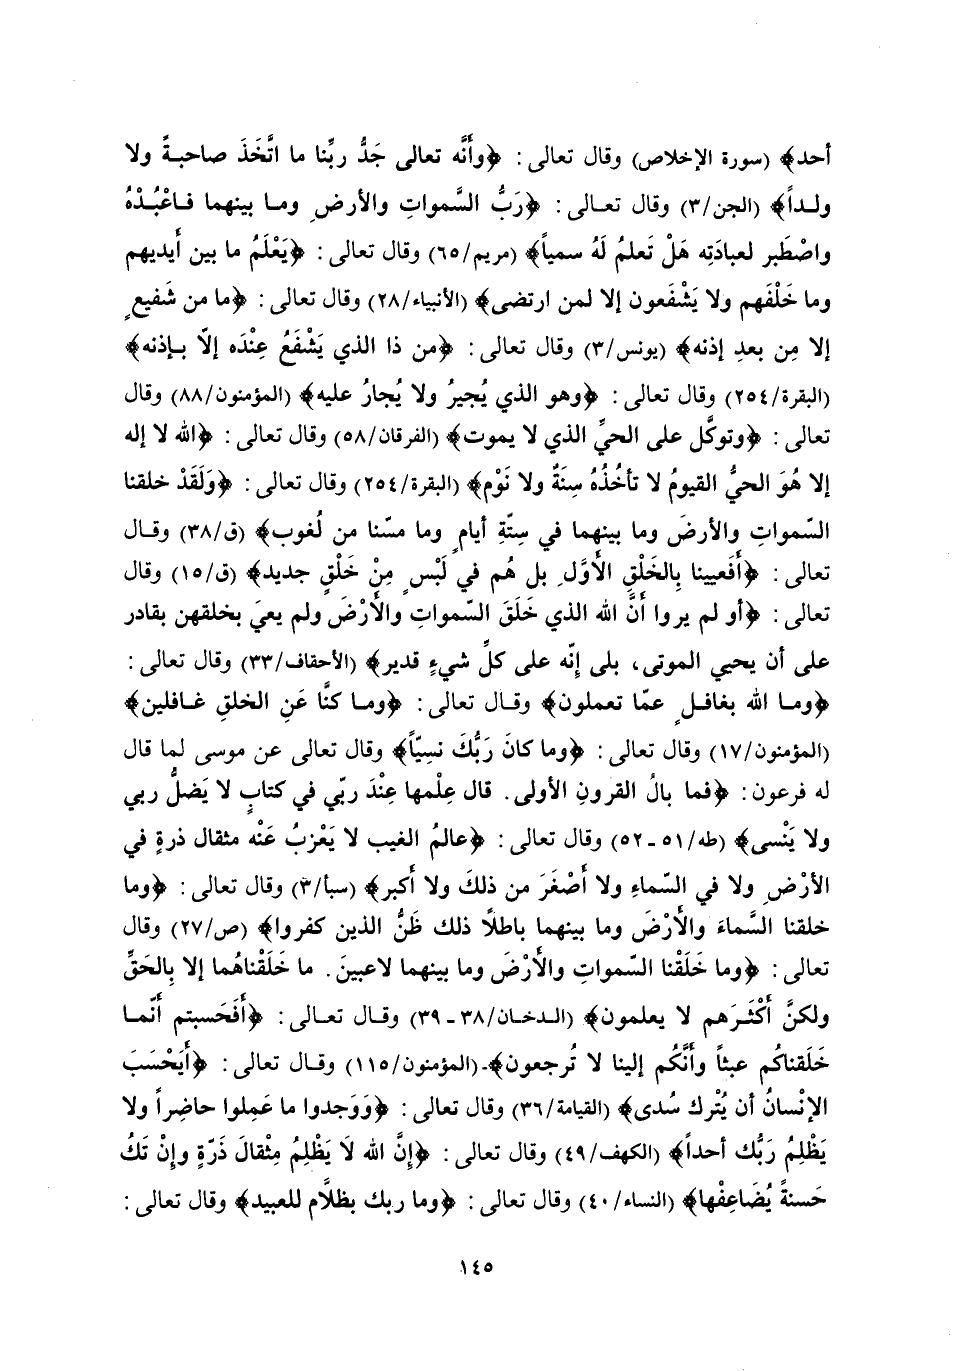 أحد﴾ (سورة الإخلاص) وقال تعالى: ﴿وأنَّه تعالى جَدُّ ربِّنا ما اتَّخَذَ صاحبةً ولا
ولداً﴾ (الجن/٣) وقال تعالى: ﴿رَبُّ السَّمواتِ والأرضِ وما بينهما فاعْبُدْهُ
واصْطَبر لعبادَتِه هَلْ تَعلمُ لَهُ سمياً﴾ (مريم/٦٥) وقال تعالى: ﴿يَعْلَمُ ما بين أيديهم
وما خَلْفَهم ولا يَشْفَعون إلا لمن ارتضى﴾ (الأنبياء/٢٨) وقال تعالى: ﴿ما من شَفيعٍ
إلا مِن بعدِ إذنه﴾ (يونس/٣) وقال تعالى: ﴿من ذا الذي يَشْفَعُ عِنْدَه إلّا بإذنه﴾
(البقرة/٢٥٤) وقال تعالى: ﴿وهو الذي يُجيرُ ولا يُجارُ عليه﴾ (المؤمنون/٨٨) وقال
تعالى: ﴿وتوكَّل على الحيِّ الذي لا يموت﴾ (الفرقان/٥٨) وقال تعالى: ﴿الله لا إله
إلا هُوَ الحيُّ القيومُ لا تأخُذُهُ سِنَةٌ ولا نَوْم﴾ (البقرة/٢٥٤) وقال تعالى: ﴿وَلَقَدْ خلقنا
السّمواتِ والأرضَ وما بينهما في سِتّةِ أيامٍ وما مسّنا من لُغوب﴾ (ق/٣٨) وقال
تعالى: ﴿أَفَعيينا بِالخَلْقِ الأَوَّلِ بل هُم في لَبْسٍ مِنْ خَلْقٍ جديد﴾ (ق/١٥) وقال
تعالى: ﴿أو لم يروا أنَّ الله الذي خَلَقَ السّمواتِ والأَرْضَ ولم يعيَ بخلقهن بقادر
على أن يحيي الموتى، بلى إنّه على كلِّ شيءٍ قدير﴾ (الأحقاف/٣٣) وقال تعالى:
﴿وما الله بغافلٍ عمّا تعملون﴾ وقال تعالى: ﴿وما كنَّا عَنِ الخلقِ غافلين﴾
(المؤمنون/١٧) وقال تعالى: ﴿وما كانَ رَبُّكَ نسيّاً﴾ وقال تعالى عن موسى لما قال
له فرعون: ﴿فما بالُ القرونِ الأولى. قال عِلْمها عِنْدَ ربّي في كتابٍ لا يَضلُّ ربي
ولا يَنْسى﴾ (طه/٥١ـ٥٢) وقال تعالى: ﴿عالمُ الغيب لا يَعْزبُ عَنْه مثقال ذرةٍ في
الأرْضِ ولا في السّماءِ ولا أصْغَرَ من ذلكَ ولا أكبر﴾ (سبأ/٣) وقال تعالى: ﴿وما
خلقنا السَّماءَ والأَرْضَ وما بينهما باطلًا ذلك ظَنُّ الذين كفروا﴾ (ص/٢٧) وقال
تعالى: ﴿وما خَلَقْنا السّمواتِ والأَرْضَ وما بينهما لاعبينَ. ما خَلَقْناهُما إلا بِالحَقِّ
ولكنَّ أَكْثَرَهم لا يعلمون﴾ (الدخان/٣٨ـ٣٩) وقال تعالى: ﴿أَفَحَسبتم أنّما
خَلَقناكُم عبثاً وأنَّكُم إلينا لا تُرجعون﴾ـ(المؤمنون/١١٥) وقال تعالى: ﴿أَيَحْسَبَ
الإنْسانُ أن يُتْركَ سُدى﴾ (القيامة/٣٦) وقال تعالى: ﴿وَوَجدوا ما عَمِلوا حاضِراً ولا
يَظْلِمُ رَبُّك أحداً﴾ (الكهف/٤٩) وقال تعالى: ﴿إنَّ الله لَا يَظْلِمِ مِثْقالَ ذَرّةٍ وإنْ تَكُ
حَسنةً يُضَاعِفْها﴾ (النساء/٤٠) وقال تعالى: ﴿وما ربك بظلَّام للعبيد﴾ وقال تعالى:
١٤٥